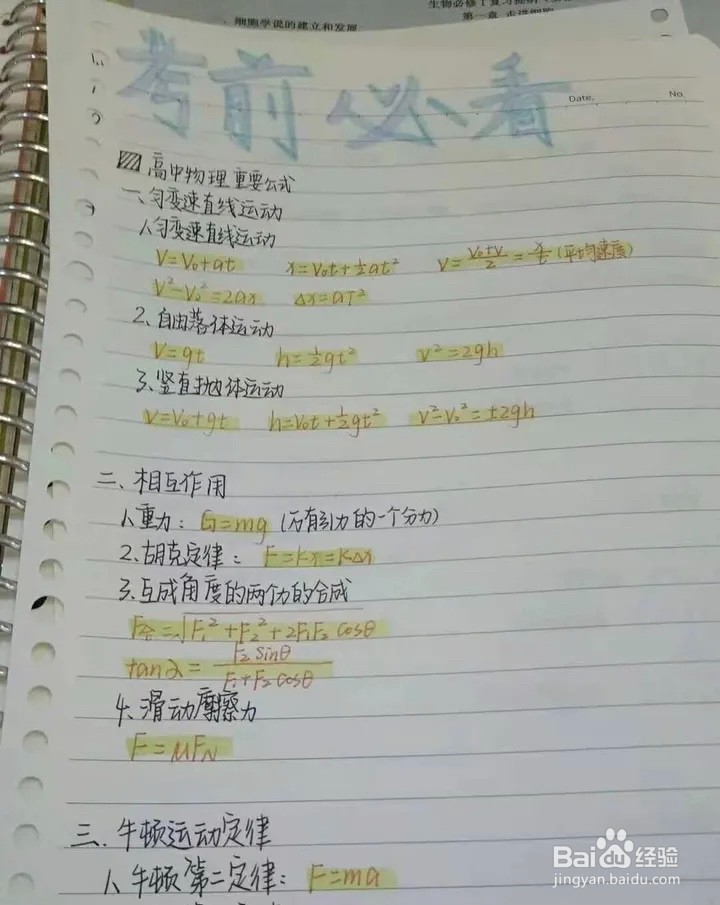 生物必修1复习提纲
第一章 走进细胞
、细胞学说的建立和发展
考前必看
Date. No
高中物理重要公式
一、匀变速直线运动
1、匀变速直线运动
V=V₀+at x=V₀t+½at² V=(V₀+V)/2=x/t(平均速度)
V²-V₀²=2ax Δx=aT²
2、自由落体运动
V=gt h=½gt² V²=2gh
3、竖直抛体运动
V=V₀+gt h=V₀t+½gt² V²-V₀²=±2gh
二、相互作用
1、重力：G=mg (万有引力的一个分力)
2、胡克定律：F=kx=kΔx
3、互成角度的两个力的合成
F合=√F₁²+F₂²+2F₁F₂cosθ
tanα=F₂sinθ/(F₁+F₂cosθ)
4、滑动摩擦力
F=μF_N
三、牛顿运动定律
1、牛顿第二定律：F=ma
Baidu经验
jingyan.baidu.com